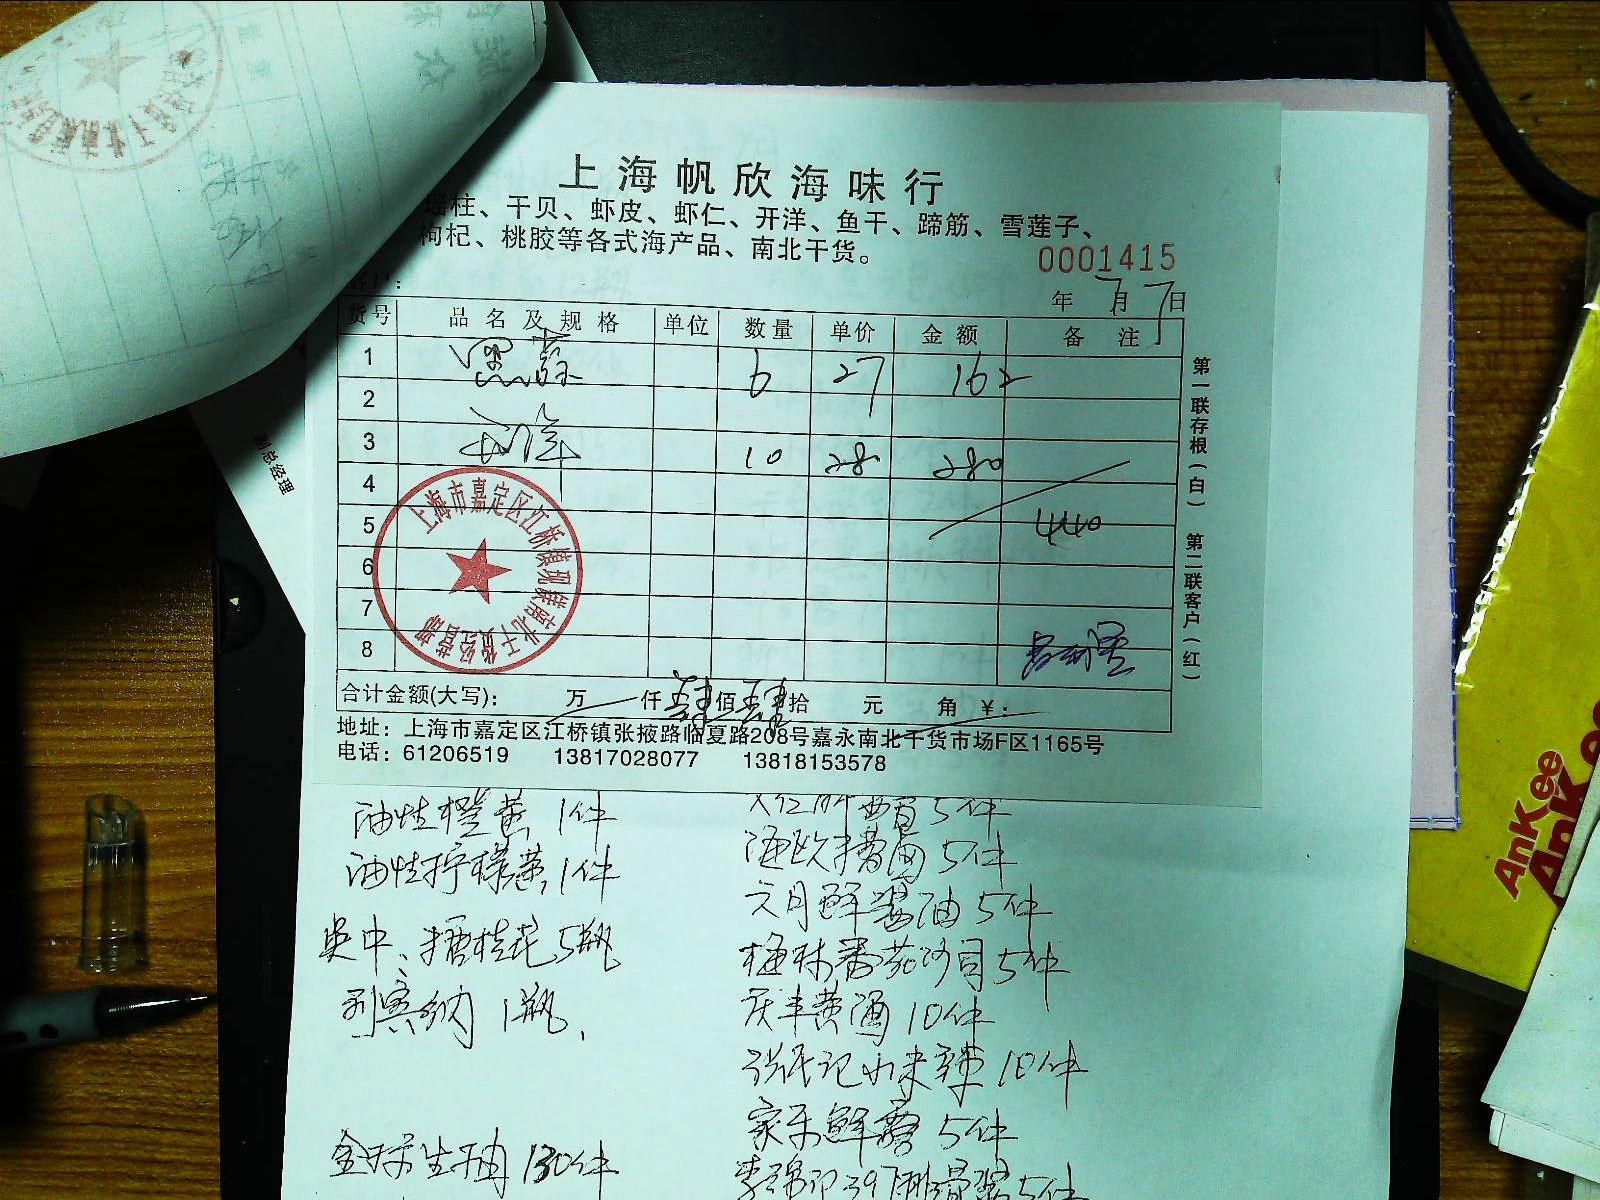 上海帆欣海味行
瑶柱、干贝、虾皮、虾仁、开洋、鱼干、蹄筋、雪莲子、
枸杞、桃胶等各式海产品、南北干货。
0001415
客户:
年 7月 7日
货号 品名及规格 单位 数量 单价 金额 备注
1 6 27 162
2
3 10 28 280
4
5 440
6
7
8
上海市嘉定区江桥镇
南北干货经营部
第一联存根(白) 第二联客户(红)
合计金额(大写): 万 仟 肆 佰 肆 拾 元 角 ¥:
地址: 上海市嘉定区江桥镇张掖路临夏路208号嘉永南北干货市场F区1165号
电话: 61206519 13817028077 13818153578
副总经理
油性橙黄 1件
油性柠檬黄 1件
吴中、糖桂花 5瓶
列宾纳 1瓶
生抽 130件
5件
海欧 5件
六月鲜酱油 5件
梅林番茄沙司 5件
庆丰黄酒 10件
小米辣 10件
家乐鲜露 5件
李锦记 397 5件
AnKee
AnKee